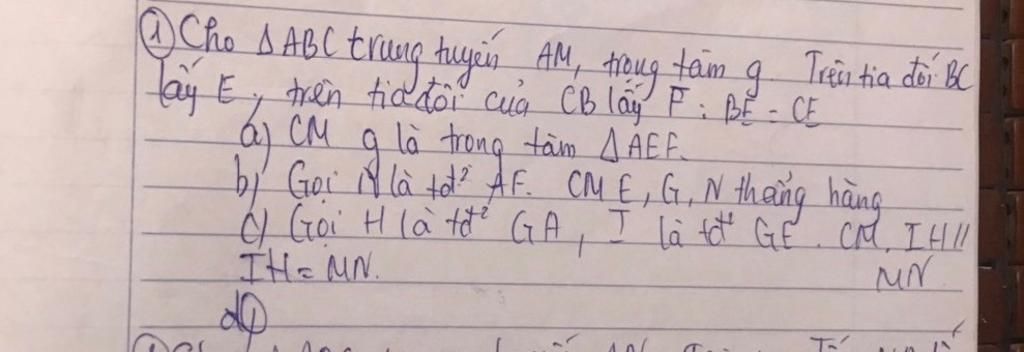 ① Cho △ABC trung tuyến AM, trọng tâm g. Trên tia đối BC
lấy E, trên tia đối của CB lấy F : BE = CE
a) CM g là trong tâm △AEF.
b) Gọi N là tđ² AF. CM E, G, N thẳng hàng
c) Gọi H là tđ² GA, I là tđ² GE. CM. IH //
IH = MN. MN
d)